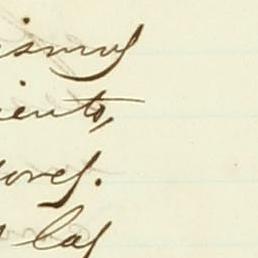 ismos
iento,
ores.
las